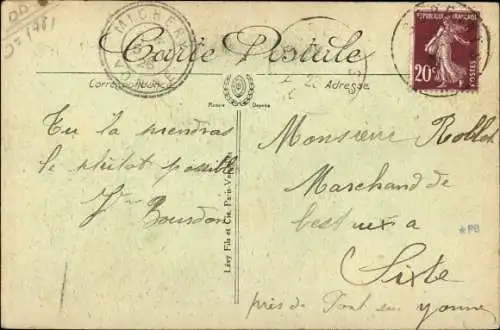 Carte Postale
Correspondance
Adresse
REPUBLIQUE FRANÇAISE
20c
POSTES
MICHERY
YONNE
Marque Déposée
Tu la prendras
le plutot possible
Bourdon
Monsieur
Marchand de
bestiaux a
Sixte
près de Pont sur Yonne
Lévy Fils et Cie, Paris
*PB